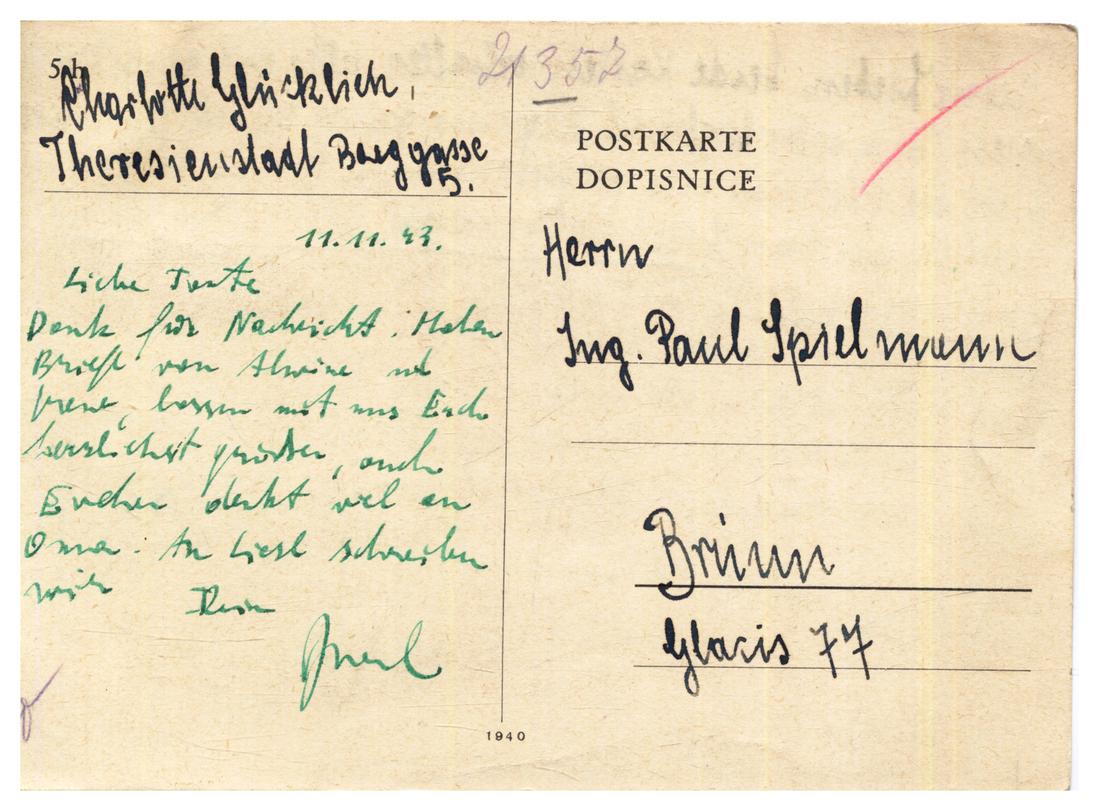 Charlotte Glücklich,
Theresienstadt Baeggasse
5.
11.11.43.
Liebe Tante
Dank für Nachricht. Haben
Briefe von Alwine und
Irene, lassen mit uns Euch
herzlichst grüßen, auch
Evchen denkt viel an
Oma. An Liesl schreiben
wir. Dein
21357
POSTKARTE
DOPISNICE
Herrn
Ing. Paul Spielmann
Brünn
Glacis 77
1940